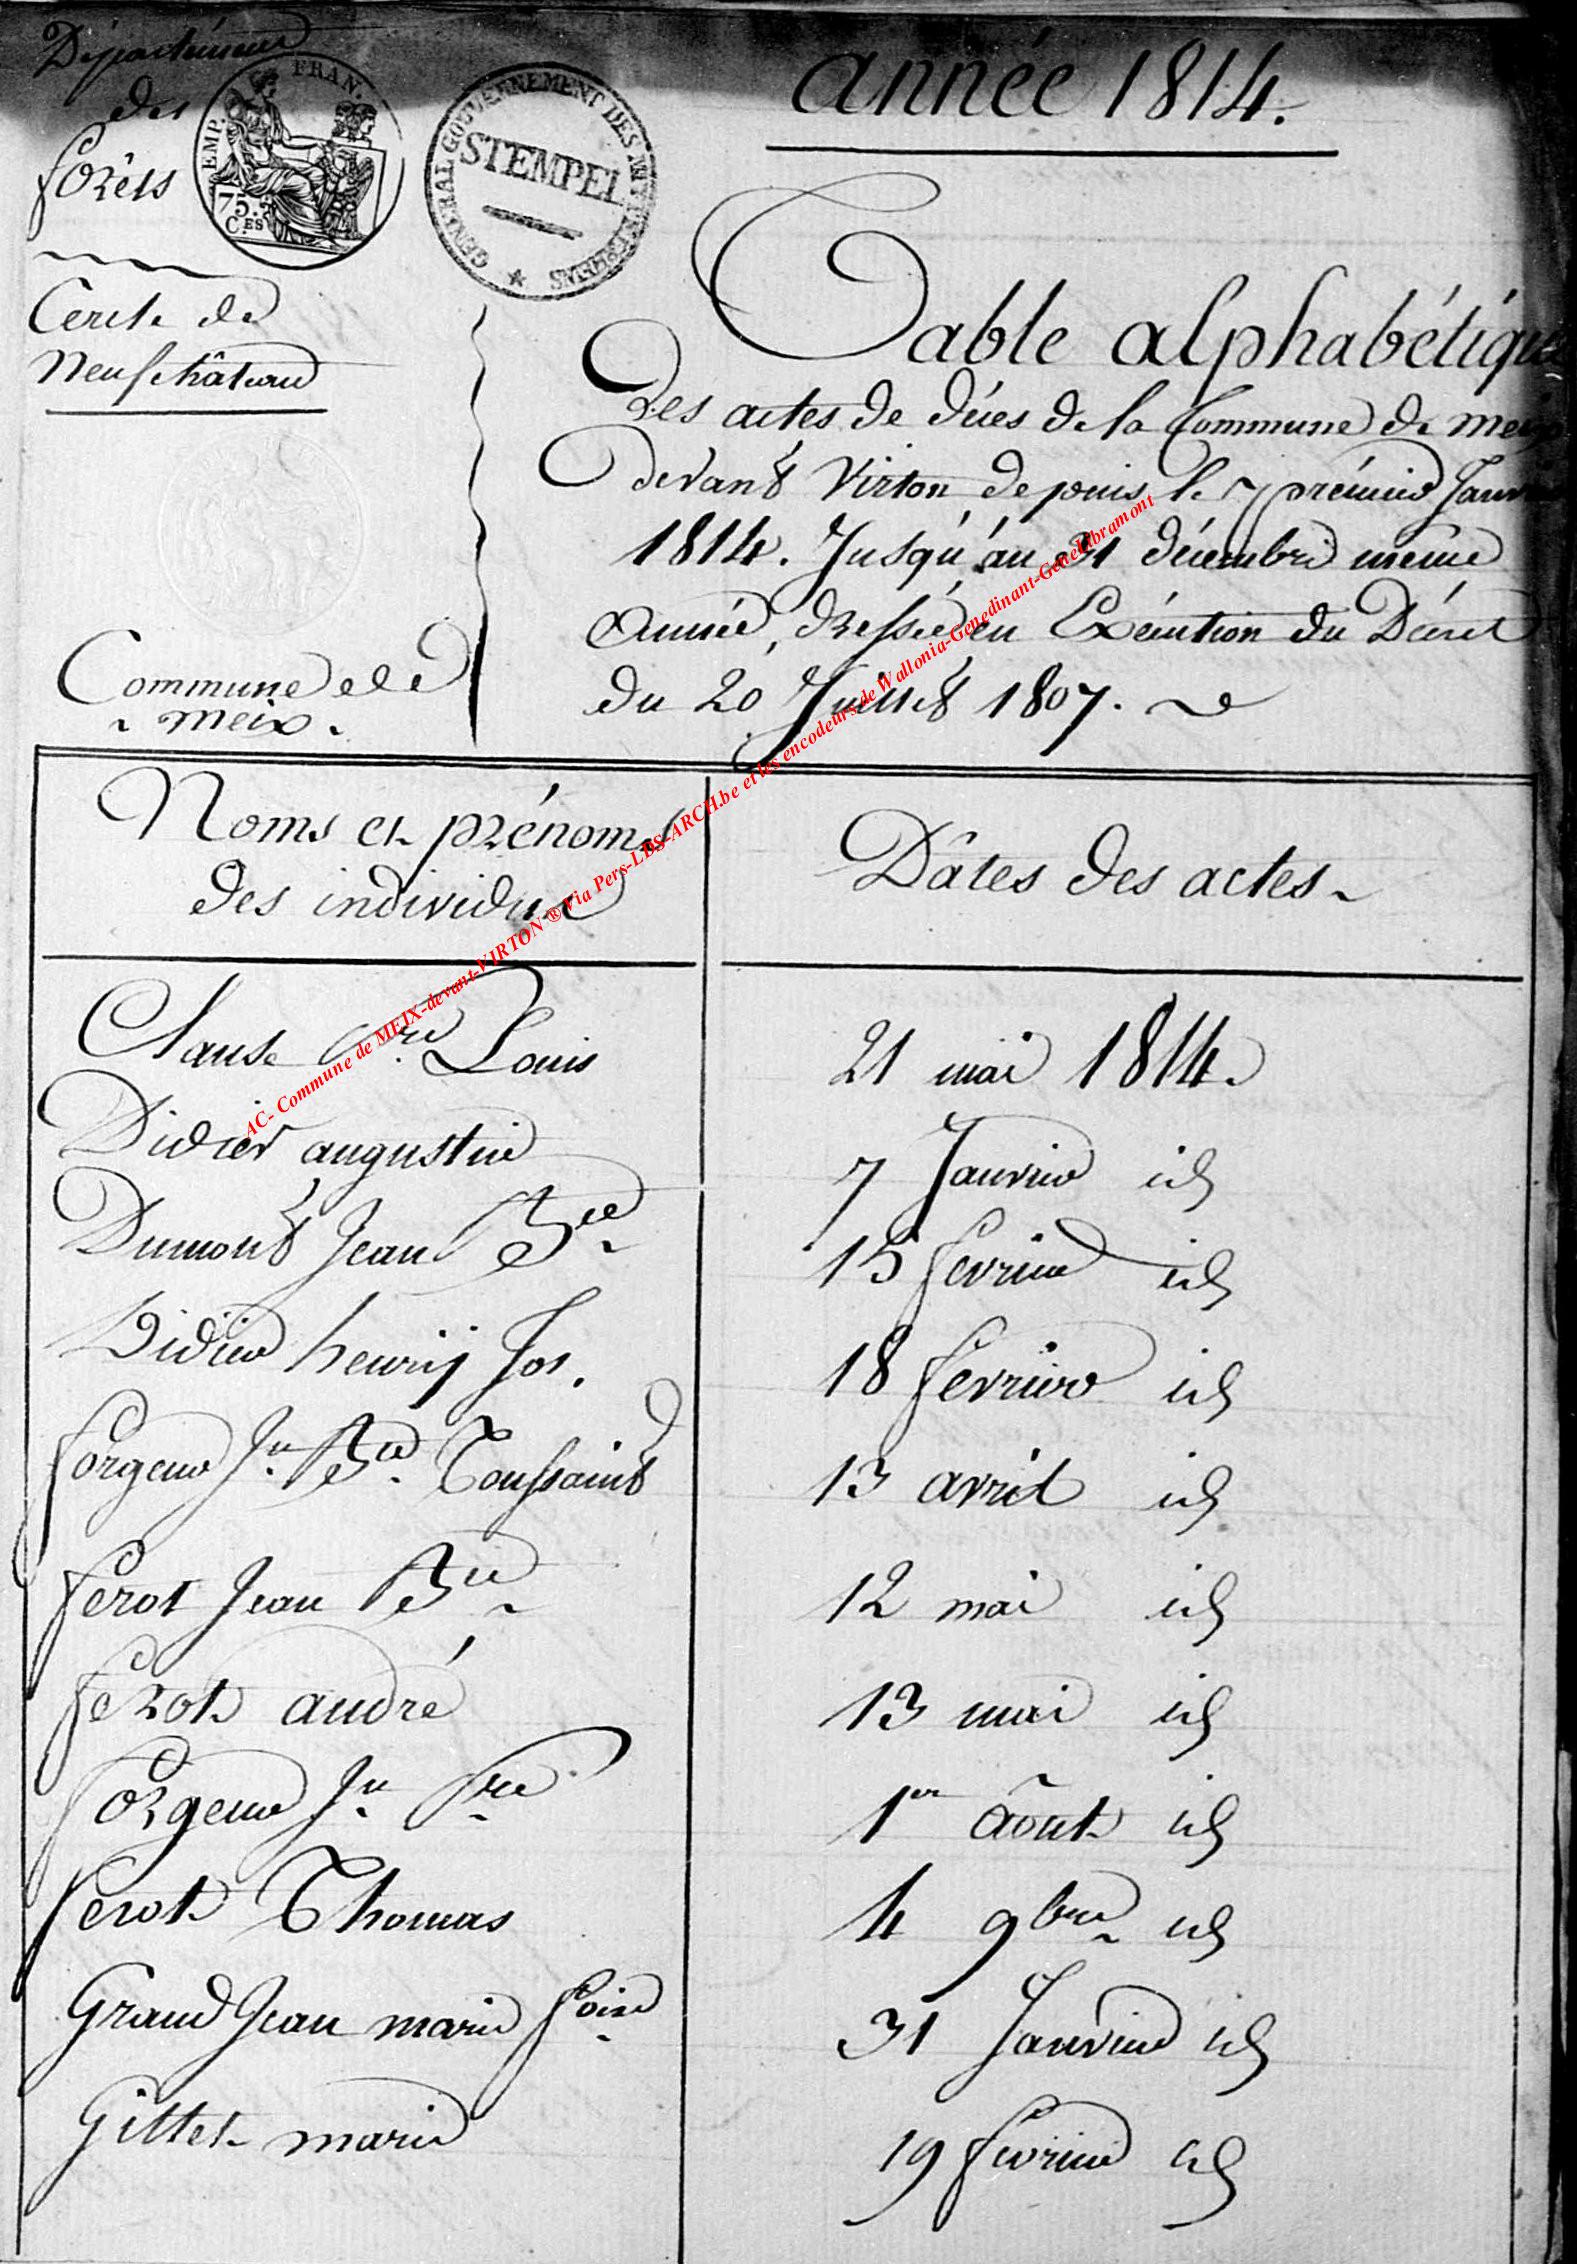 Département
des
forêts
EMP. FRAN.
75.
C.ES
GENERAL GOUVERNEMENT DES
STEMPEL
année 1814.
Cercle de
Neufchâteau
Commune de
Meix.
Table alphabétique
Des actes de décès de la Commune de meix
devant Virton depuis le premier Janvier
1814. Jusqu'au 31 décembre même
Année, dressée en Exécution du Décret
du 20 Juillet 1807.
Noms et prénoms
des individus
Dâtes des actes
Clause Pre Louis
21 mai 1814.
Didier augustin
7 Janvier id
Dumont Jean Bte
15 fevrier id
Didier henrij Jos.
18 fevrier id
forgeur Jn Bte Toussaint
13 avril id
ferot Jean Bte
12 mai id
ferot andré
13 mai id
forgeur Jn Pre
1er août id
ferot Thomas
4 9bre id
Grand Jean marie foise
31 Janvier id
Gillet marie
19 fevrier id
AC- Commune de MEIX-devant-VIRTON ® Via Pers-LDS-ARCH.be et les encodeurs de Wallonia-Genedinant-GeneLibramont